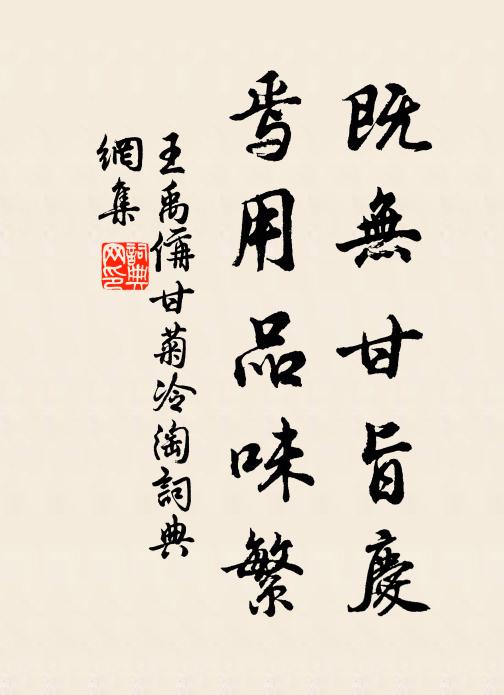 既無甘旨慶
焉用品味繁
王禹偁甘菊冷淘詞典
網集
詞典網印